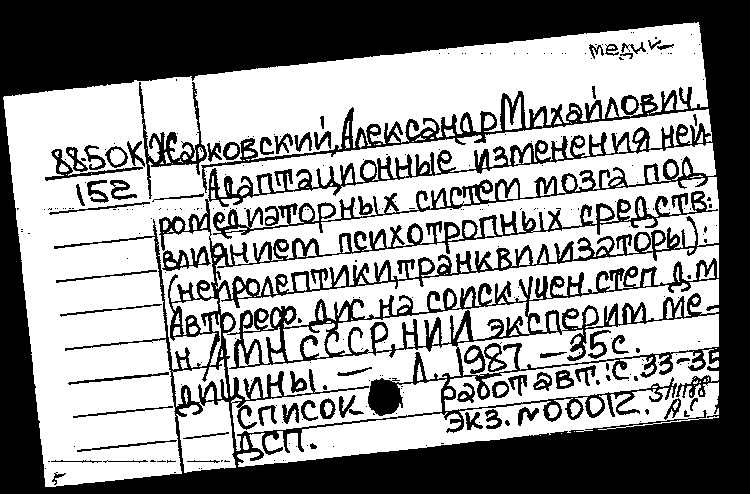 медик
88-50К Жарковский, Александр Михайлович.
152 Адаптационные изменения ней-
ромедиаторных систем мозга под
влиянием психотропных средств:
(нейролептики, транквилизаторы):
Автореф. дис. на соиск. учен. степ. д.м
н. /АМН СССР, НИИ эксперим. ме-
дицины. — Л., 1987. — 35 с.
список работ авт.: с. 33-35
ДСП. экз. №00012. 3/III 88
А.С.